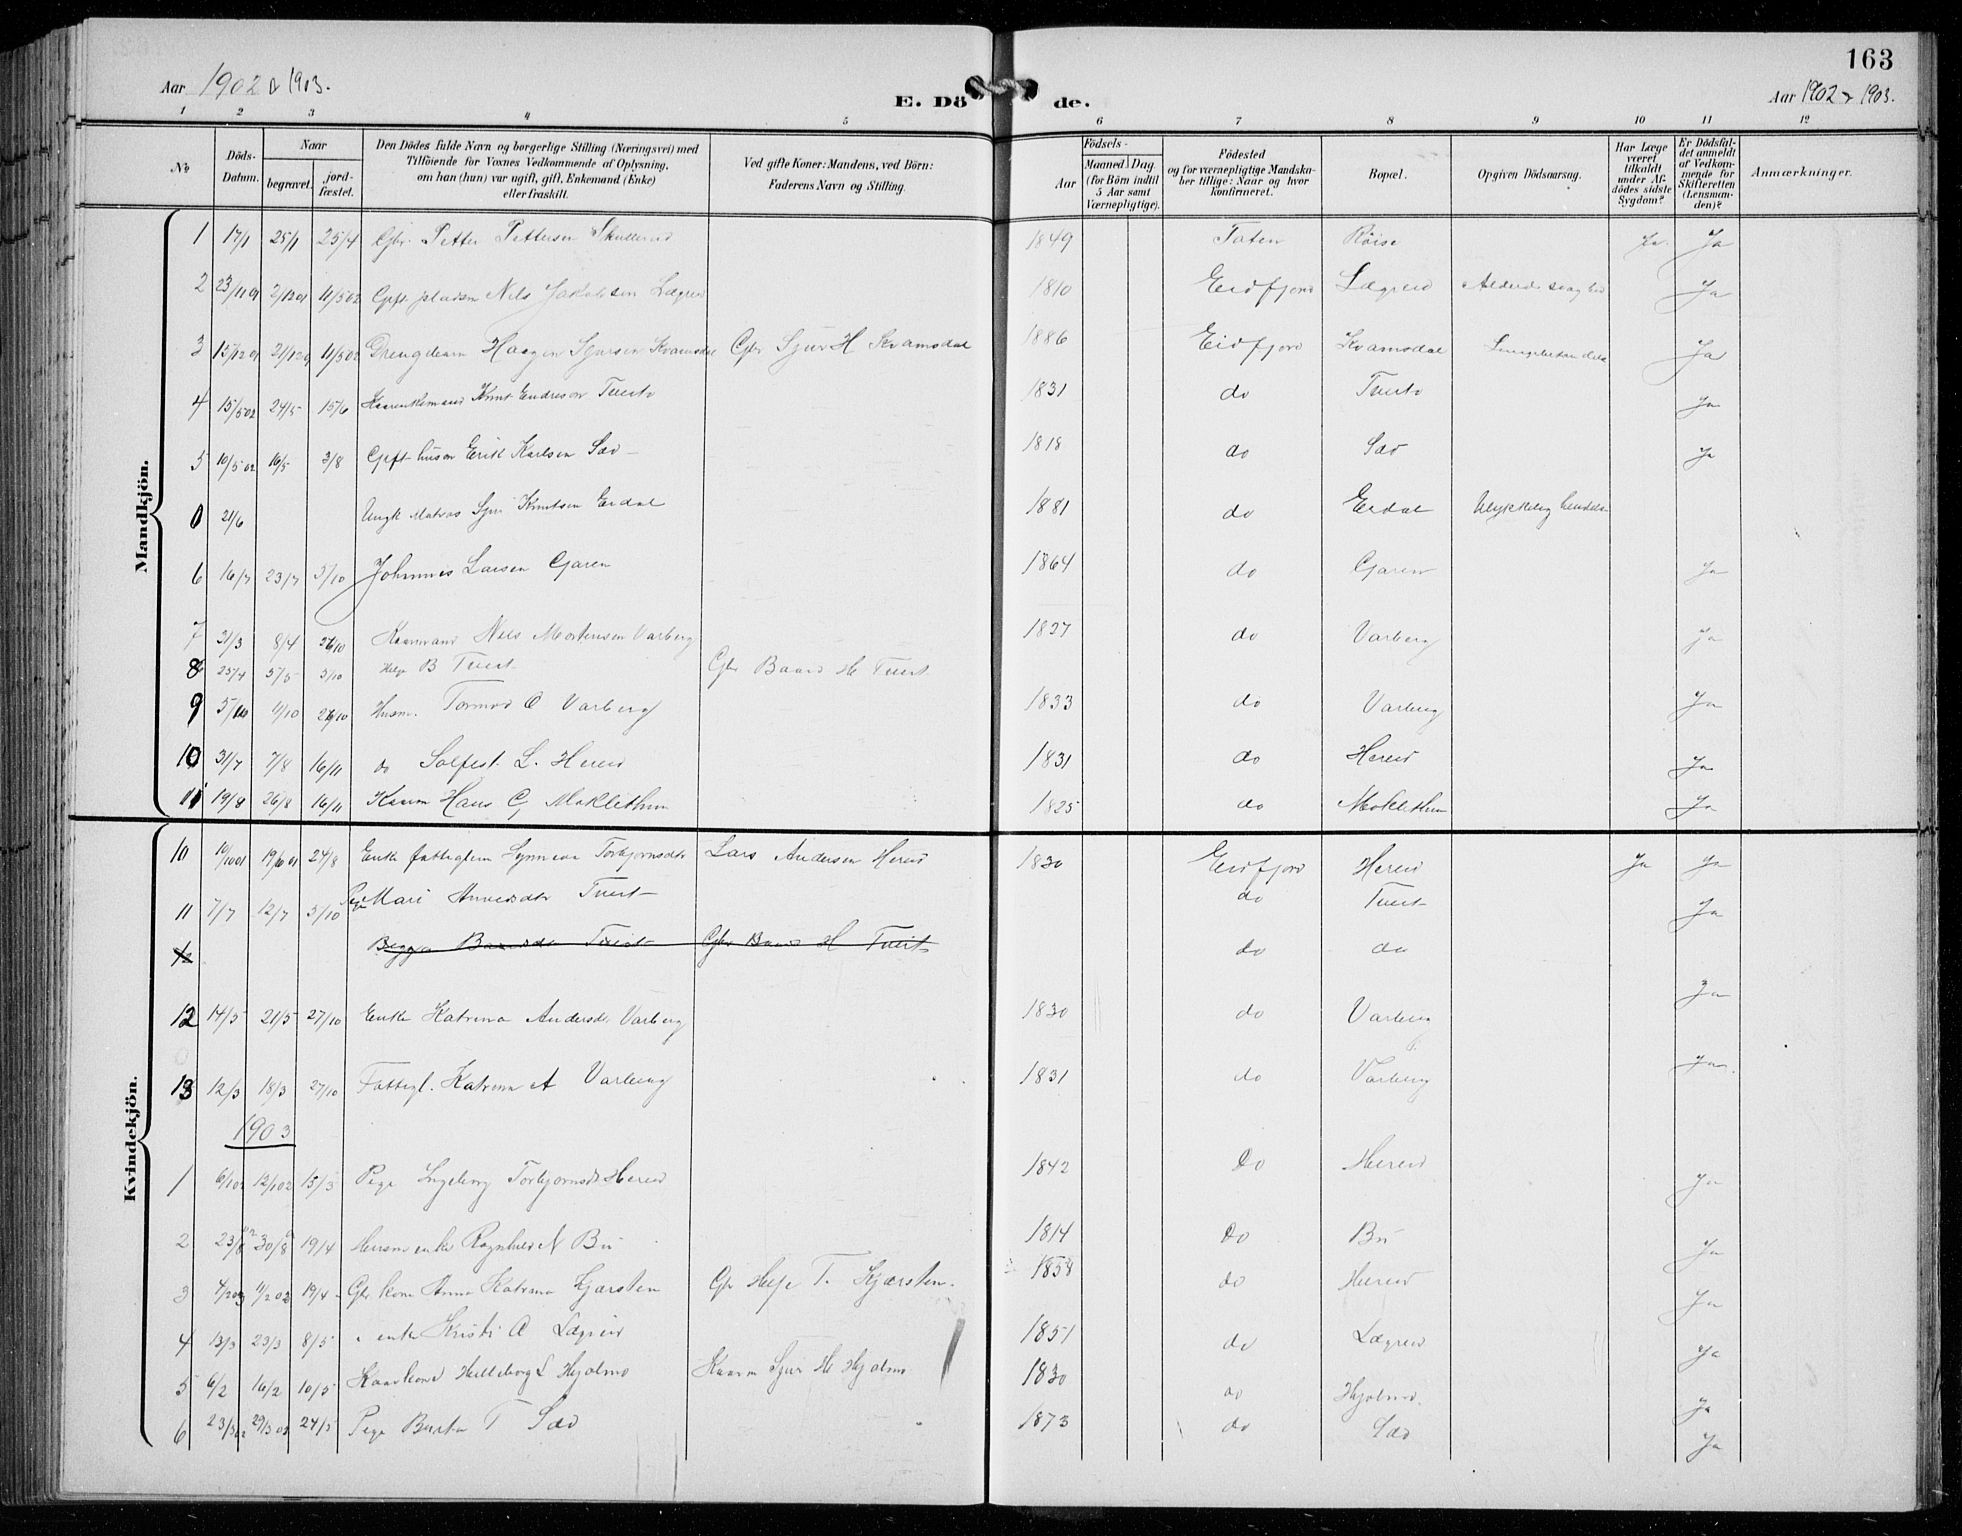 163
Aar 1902 & 1903.
E. Dö de.
Aar 1902 & 1903.
1 2 3 4 5 6 7 8 9 10 11 12
No
Döds-Datum.
Naar
begravet.
jord-fæstet.
Den Dödes fulde Navn og borgerlige Stilling (Næringsvei) med
Tilföiende for Voxnes Vedkommende af Oplysning,
om han (hun) var ugift, gift, Enkemand (Enke)
eller fraskilt.
Ved gifte Koner: Mandens, ved Börn:
Faderens Navn og Stilling.
Födsels-
Aar
Maaned Dag
(for Börn indtil
5 Aar samt
Værnepligtige).
Födested
og for værnepligtige Mandska-
ber tillige: Naar og hvor
konfirmeret.
Bopæl.
Opgiven Dödsaarsag.
Har Læge
været
tilkaldt
under Af-
dödes sidste
Sygdom?
Er Dödsfal-
det anmeldt
af Vedkom-
mende for
Skifteretten
(Lensman-
den)?
Anmærkninger.
Mandkjön.
1 17/1 25/1 25/4 Gbr. Petter Pettersen 1849 Toten Röise Ja. Ja
2 23/11 01 2/12 01 11/5 02 Nils Jakobsen Lægreid 1810 Eidfjord Lægreid Ja
3 15/12 01 21/12 01 11/5 02 Haagen Sjursen Kvamsdal Gbr Sjur H Kvamsdal 1886 Eidfjord Kvamsdal Ja
4 15/5 02 24/5 15/6 Knut Endreson Tveito 1831 do Tveito Ja
5 10/5 02 16/5 3/8 Erik Karlsen Sæd 1818 do Sæd Ja
0 21/6 Ungk Matros Sjur Knutsen Erdal 1881 do Erdal Ulykkelig hendelse
6 16/7 23/7 5/10 Johannes Larsen Garen 1864 do Garen Ja
7 31/3 8/4 26/10 Kaarmand Nils Mortensen Varberg 1827 do Varberg Ja
8 25/4 5/5 5/10 Helge B Tveit Gbr Baard H Tveit
9 5/10 11/10 26/10 Husm. Tormod O Varberg 1833 do Varberg Ja
10 31/7 7/8 16/11 do Solfest L. Hereid 1831 do Hereid Ja
11 19/8 26/8 16/11 Kaarm Hans G Moklethun 1825 do Moklethun Ja
Kvindekjön.
10 10/10 01 19/10 01 24/8 Enke fattiglem Synneva Torbjornsdtr Lars Andersen Hereid 1830 Eidfjord Hereid Ja Ja
11 7/7 12/7 5/10 Pige Mari Tveit do Tveit Ja
12 Baardsdtr Tveit Gbr Baard H Tveit do do
12 14/5 21/5 27/10 Enke Katrina Andersdtr Varberg 1830 do Varberg Ja
13 12/3 18/3 27/10 Fattigl. Katrina A Varberg 1831 do Varberg Ja.
1903
1 6/1 02 12/1 02 15/3 Pige Ingeborg Torbjornsdtr Hereid 1842 Do Hereid Ja
2 23/8 02 30/8 02 19/4 enke Ragnhild N Bu 1814 Do Bu Ja
3 4/2 03 11/2 03 19/4 Gbr kone Anna Katrina Kjærsten Gbr Helje T. Kjærsten. 1858 do Hereid Ja
4 13/3 23/3 8/5 " enke Kristi O Lægreid 1851 do Lægreid Ja
5 6/2 16/2 10/5 Kaarkone Helleborg L Hjolmo Kaarm Sjur H Hjolmo 1830 do Hjolmo. Ja
6 23/3 02 29/3 02 24/5 Pige T Sæd 1873 do Sæd Ja